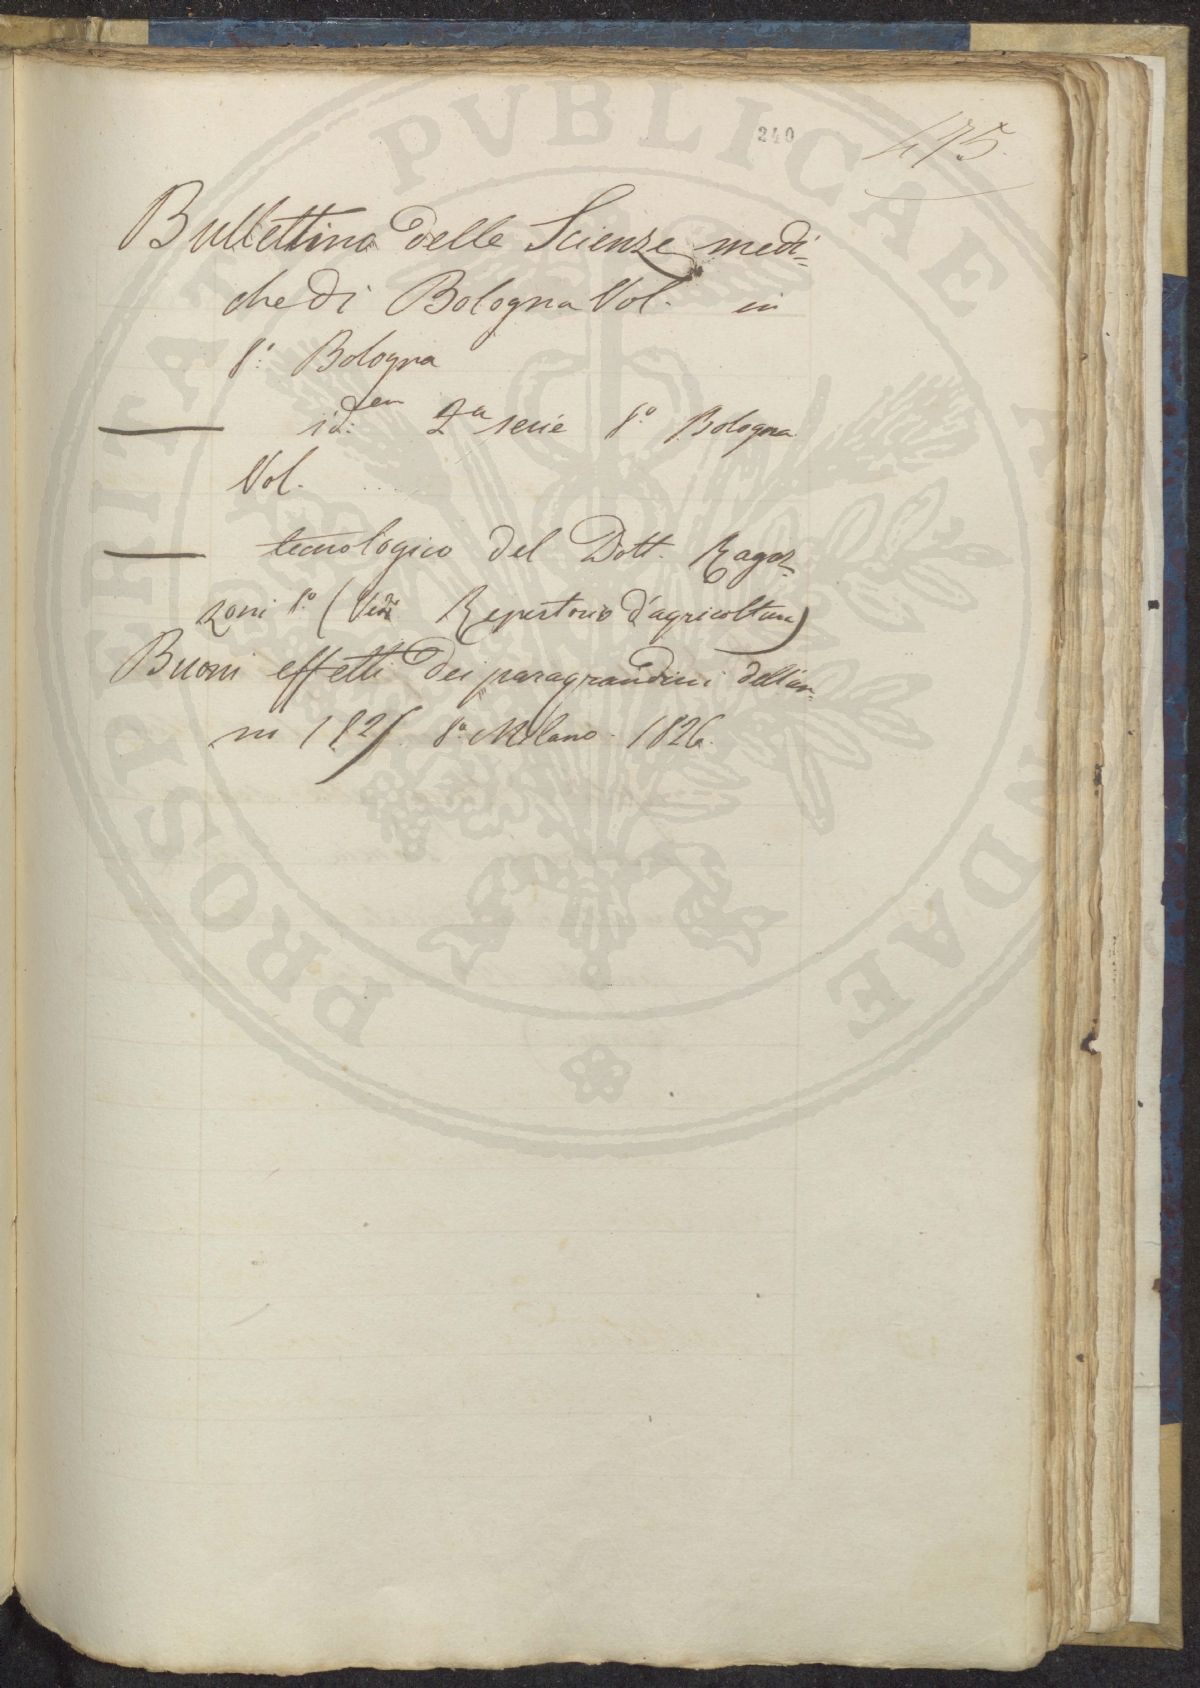 240
475.
Bullettino delle Scienze medi=
che di Bologna Vol. in
8.º Bologna
—— id.em 2.a serie 8.º Bologna
Vol.
—— tecnologico del Dott. Ragaz=
zoni 8.º (Vedi Repertorio d'agricoltura)
Buoni effetti dei paragrandini dell'an=
no 1825. 8.º Milano. 1826.
PROSPERITATI PVBLICAE AVGENDAE